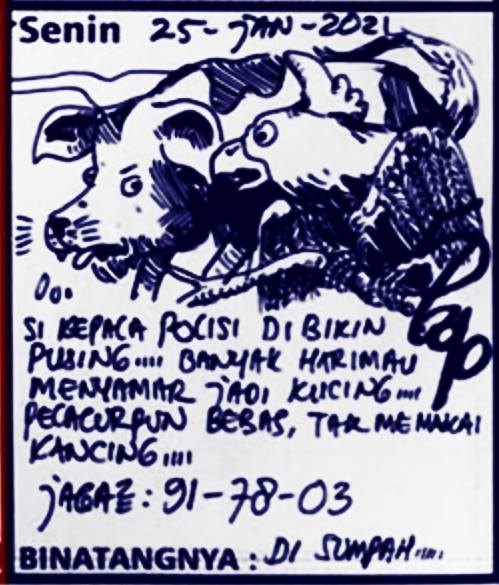 Senin 25-JAN-2021
SI KEPALA POLISI DI BIKIN
PUSING.... BANYAK HARIMAU
MENYAMAR JADI KUCING....
PELACURPUN BEBAS, TAK MEMAKAI
KANCING....
JAGAZ: 91-78-03
BINATANGNYA : DI SUMPAH....